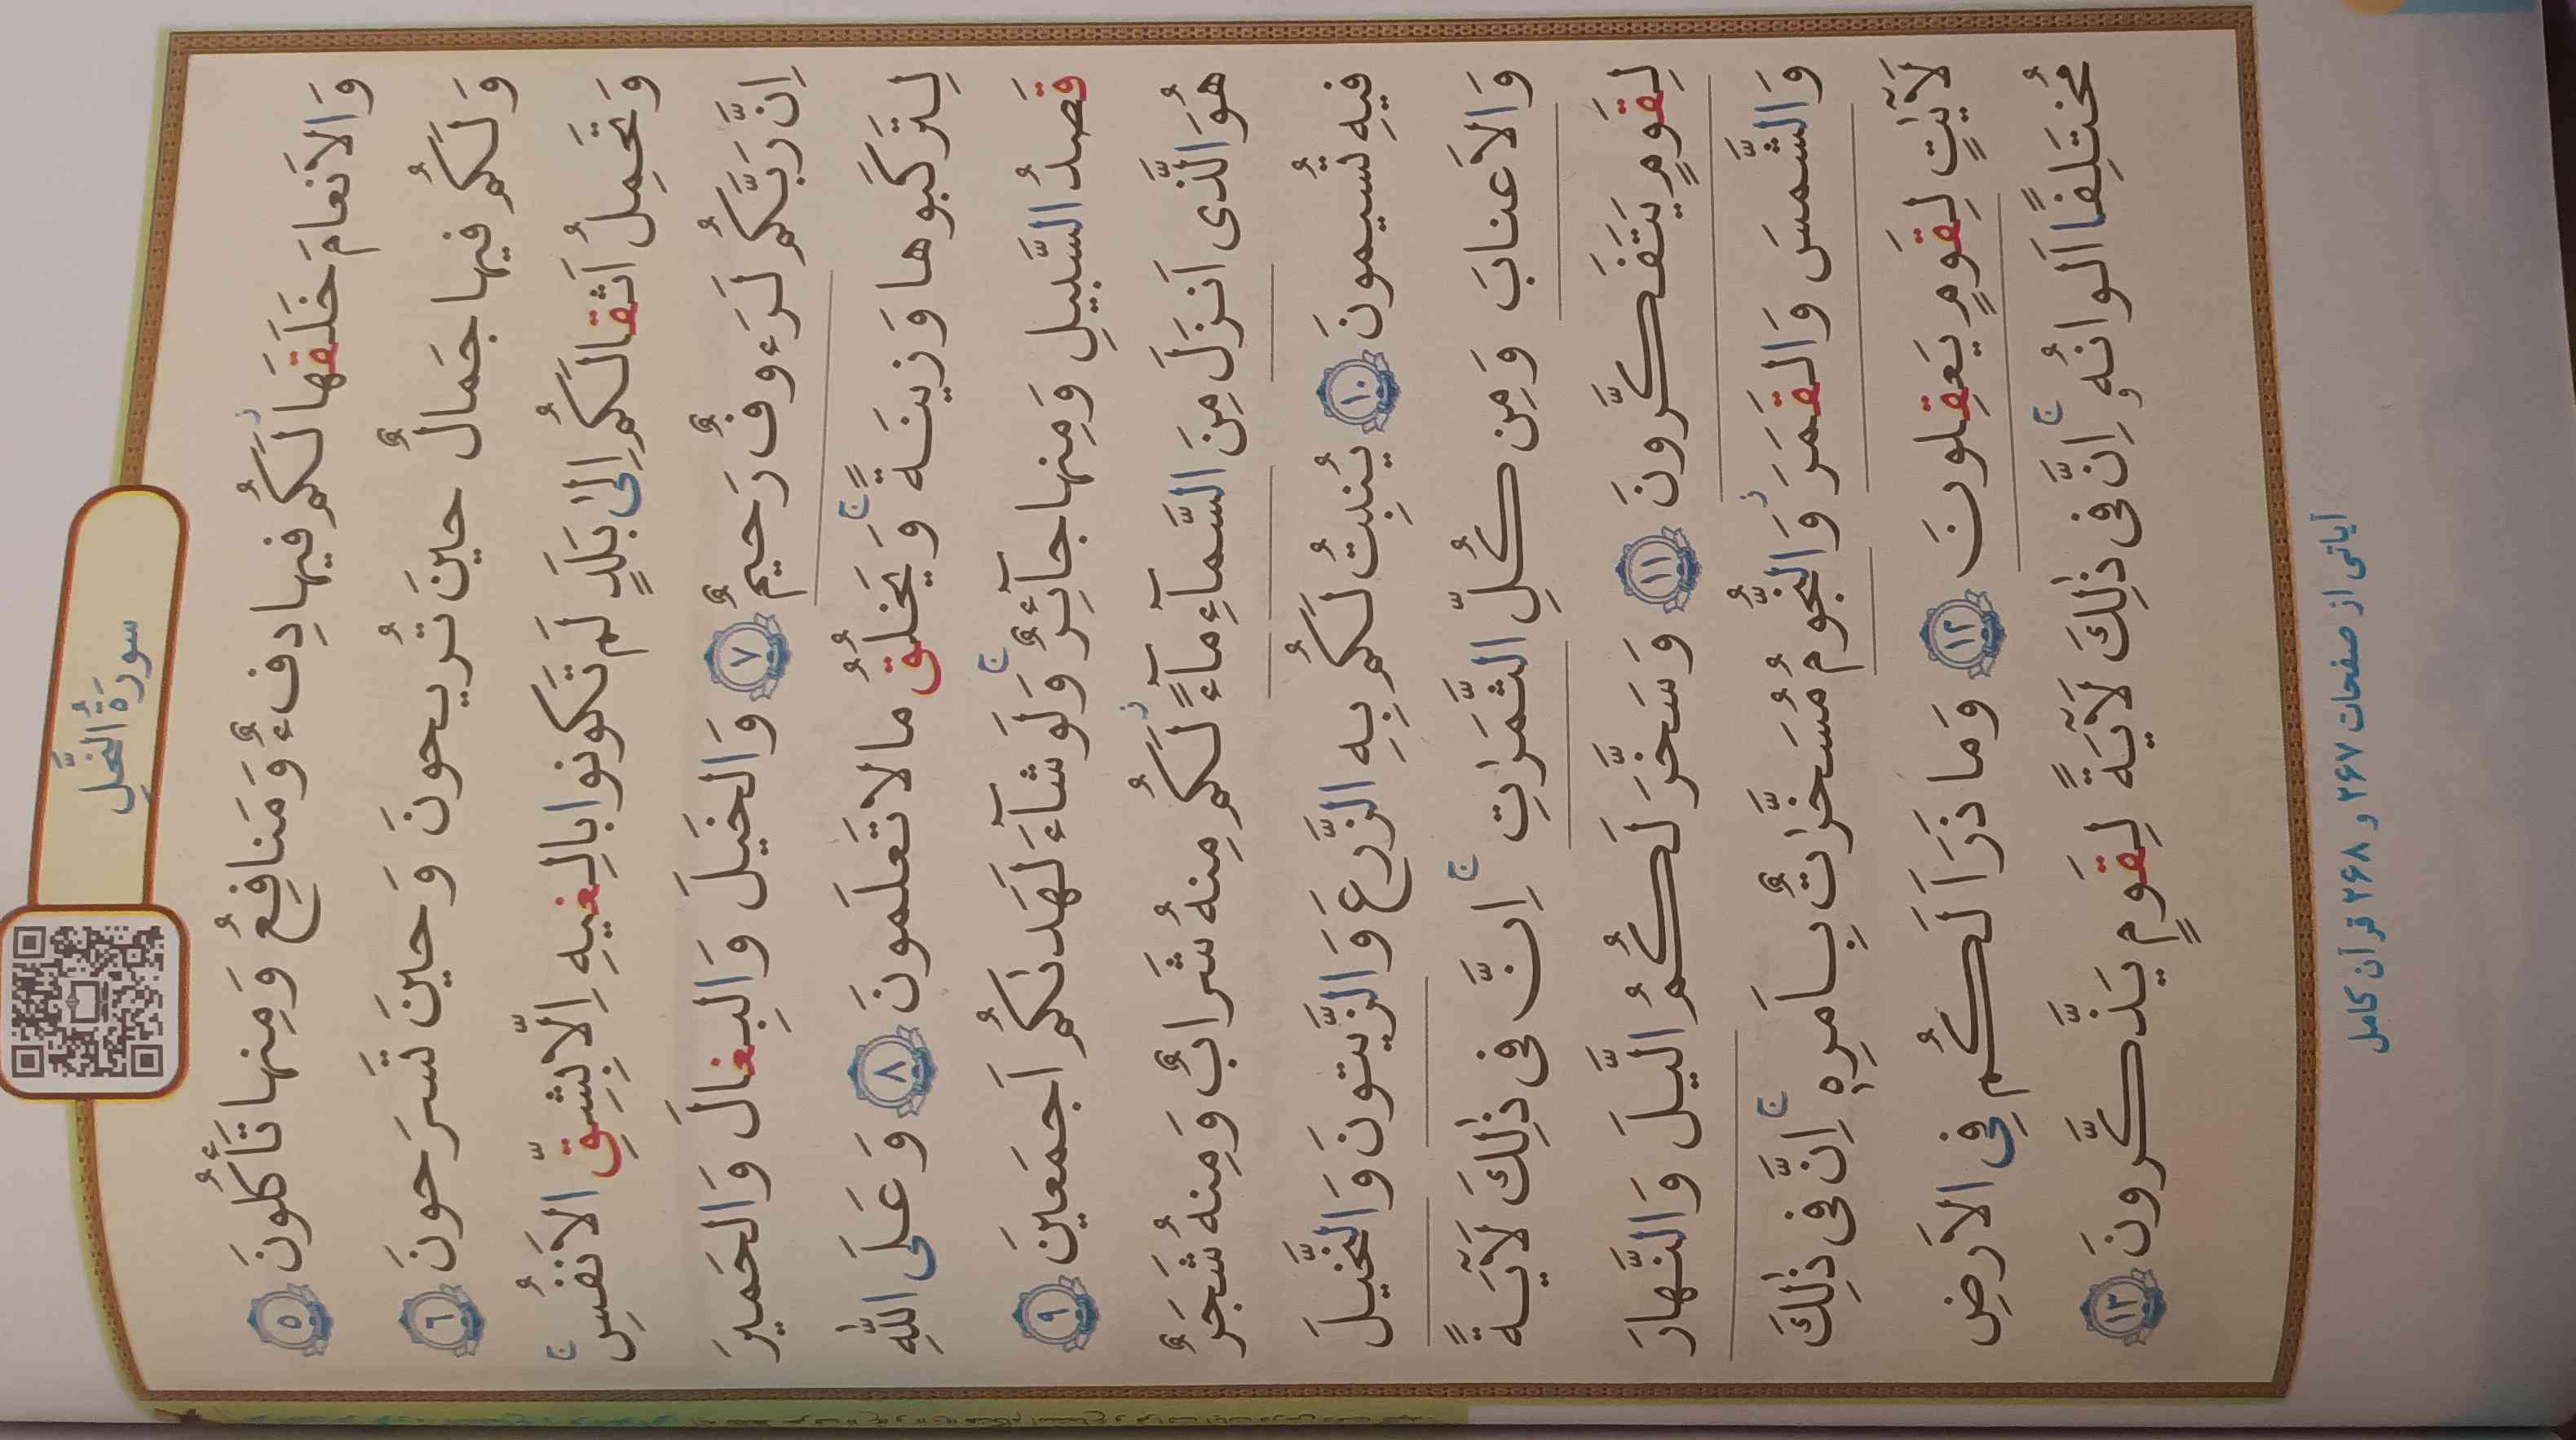 سورَةُ النَّحلِ
وَالاَنعامَ خَلَقَها لَكُم فيها دِفءٌ وَمَنافِعُ وَمِنها تَأكُلونَ ٥
وَلَكُم فيها جَمالٌ حينَ تُريحونَ وَ حينَ تَسرَحونَ ٦
وَ تَحمِلُ اَثقالَكُم اِلىٰ بَلَدٍ لَم تَكونوا بالِغيهِ اِلّا بِشِقِّ الاَنفُسِ ۚ
اِنَّ رَبَّكُم لَرَءوفٌ رَحيمٌ ٧ وَالخَيلَ وَالبِغالَ وَالحَميرَ
لِتَركَبوها وَ زينَةً ۚ وَ يَخلُقُ ما لا تَعلَمونَ ٨ وَ عَلَى اللّٰهِ
قَصدُ السَّبيلِ وَ مِنها جآئِرٌ ۚ وَلَو شآءَ لَهَدىٰكُم اَجمَعينَ ٩
هُوَ الَّذى اَنزَلَ مِنَ السَّمآءِ مآءً لَكُم مِنهُ شَرابٌ وَمِنهُ شَجَرٌ
فيهِ تُسيمونَ ١٠ يُنبِتُ لَكُم بِهِ الزَّرعَ وَ الزَّيتونَ وَ النَّخيلَ
وَ الاَعنابَ وَ مِن كُلِّ الثَّمَرٰتِ ۚ اِنَّ فى ذٰلِكَ لَآيَةً
لِقَومٍ يَتَفَكَّرونَ ١١ وَ سَخَّرَ لَكُمُ الَّيلَ وَ النَّهارَ
وَ الشَّمسَ وَ القَمَرَ وَ النُّجومُ مُسَخَّرٰتٌ بِاَمرِهٖ ۚ اِنَّ فى ذٰلِكَ
لَآيٰتٍ لِقَومٍ يَعقِلونَ ١٢ وَ ما ذَرَاَ لَكُم فِى الاَرضِ
مُختَلِفًا اَلوانُهٗ ۚ اِنَّ فى ذٰلِكَ لَآيَةً لِقَومٍ يَذَّكَّرونَ ١٣
آیاتی از صفحات ۲۶۷ و ۲۶۸ قرآن کامل